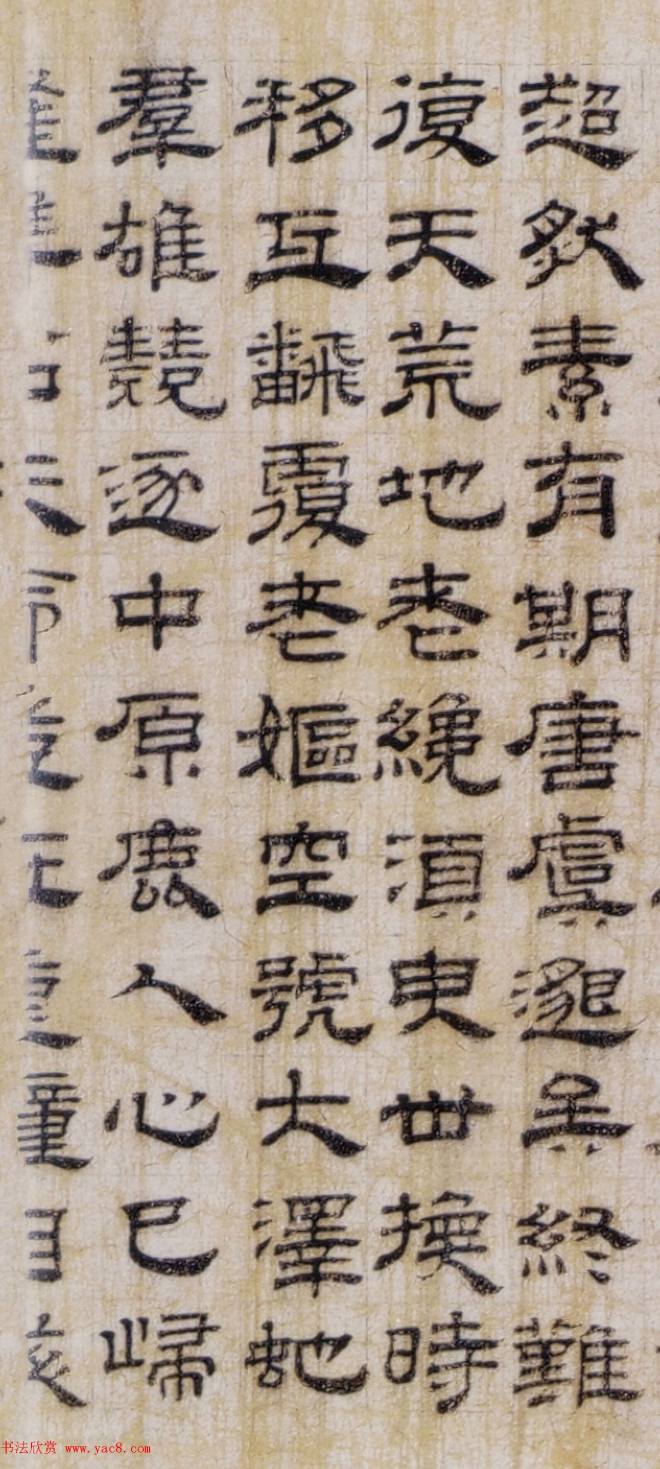 超然素有期唐虞邈矣終難
復天荒地老纔湏臾世換時
移互飜覆老嫗空號大澤虵
羣雄競逐中原鹿人心已歸